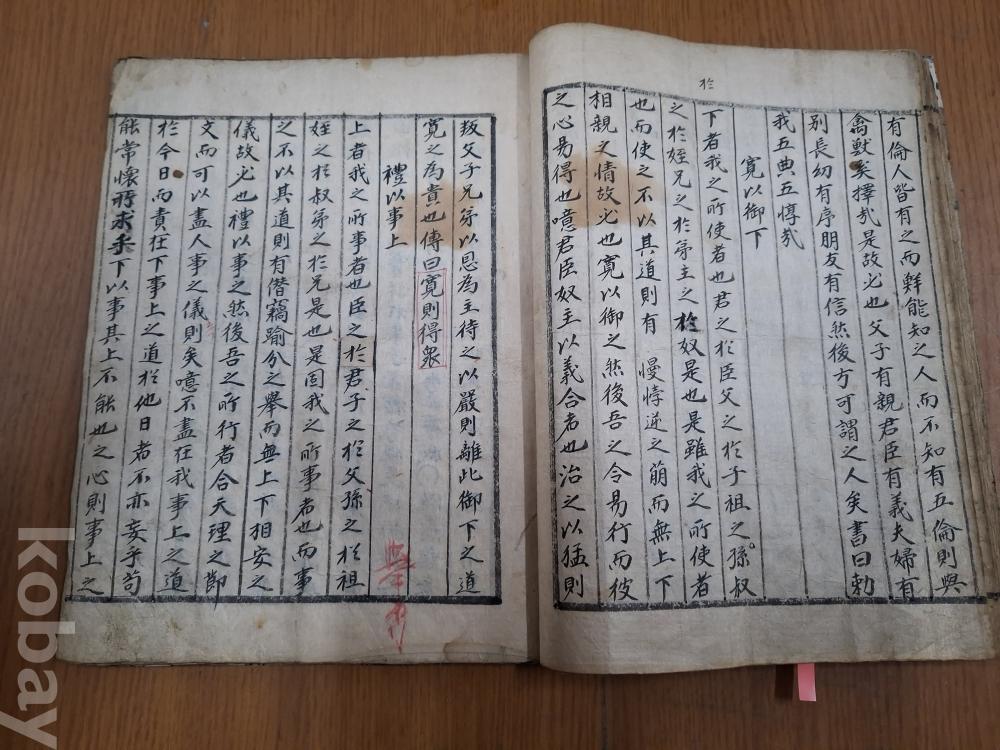 於
有倫人皆有之而鮮能知之人而不知有五倫則與
禽獸奚擇哉是故必也父子有親君臣有義夫婦有
別長幼有序朋友有信然後方可謂之人矣書曰勅
我五典五惇哉
寬以御下
下者我之所使者也君之於臣父之於子祖之孫叔
之於姪兄之於弟主之於奴是也是雖我之所使者
也而使之不以其道則有慢悖逆之萠而無上下
相親之情故必也寬以御之然後吾之令易行而彼
之心易得也噫君臣奴主以義合者也治之以猛則
叛父子兄弟以恩為主待之以嚴則離此御下之道
寬之為貴也傳曰寬則得衆
禮以事上
上者我之所事者也臣之於君子之於父孫之於祖
姪之於叔弟之於兄是也是固我之所事者也而事
之不以其道則有僭竊踰分之擧而無上下相安之
儀故必也禮以事之然後吾之所行者合天理之節
文而可以盡人事之儀則矣噫不盡在我事上之道
於今日而責在下事上之道於他日者不亦妄乎苟
能常懷所求乎下以事其上不能也之心則事上之
kobay